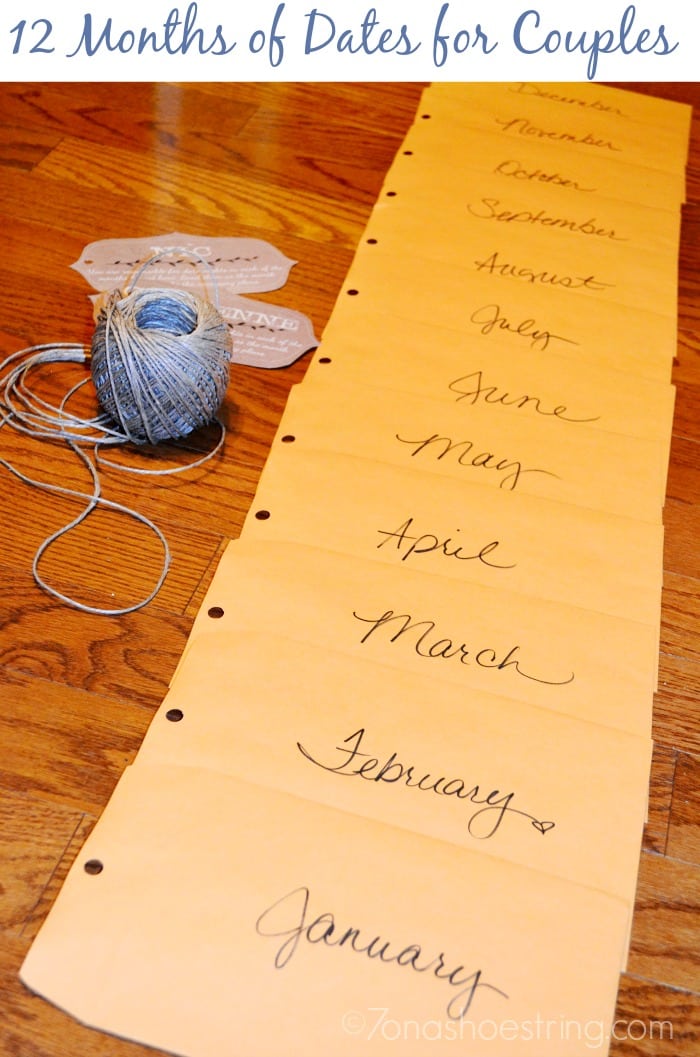 12 Months of Dates for Couples
December
November
October
September
August
July
June
May
April
March
February
January
©7onashoestring.com